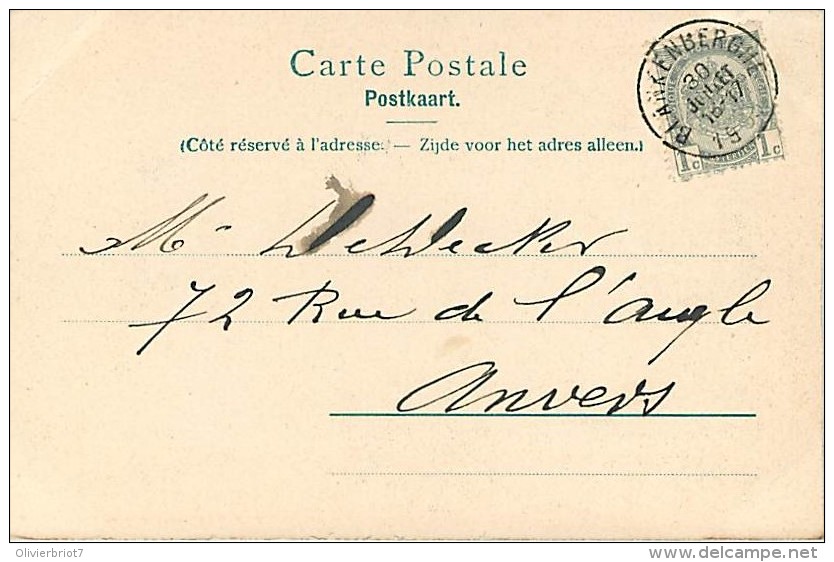 Carte Postale
Postkaart.
(Côté réservé à l'adresse. — Zijde voor het adres alleen.)
BLANKENBERGHE
30
JUILLET
16-17
1 C 1 C
Mr DeDecker
72 Rue de l'Augle
Anvers
Olivierbriot7
www.delcampe.net